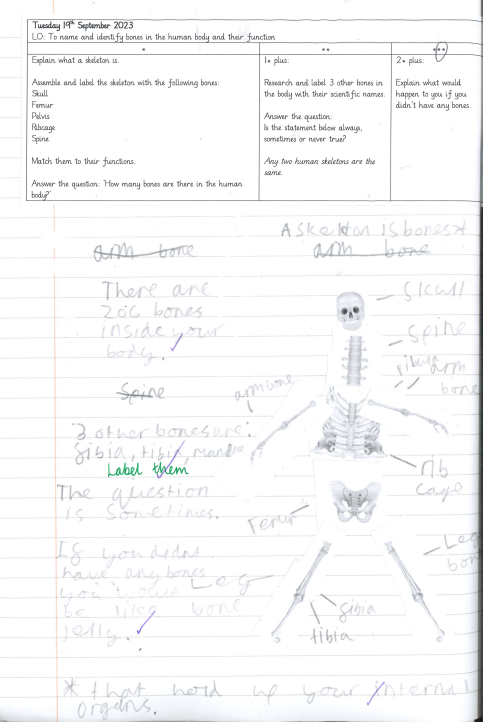 Tuesday 19th September 2023
LO: To name and identify bones in the human body and their function
*
Explain what a skeleton is.
Assemble and label the skeleton with the following bones:
Skull
Femur
Pelvis
Ribcage
Spine
Match them to their functions.
Answer the question: 'How many bones are there in the human
body?'
**
1* plus:
Research and label 3 other bones in
the body with their scientific names.
Answer the question:
Is the statement below always,
sometimes or never true?
Any two human skeletons are the
same.
***
2* plus:
Explain what would
happen to you if you
didn't have any bones.
A Skelton is bones*
arm bone
arm bone
There are
206 bones
inside your
body.
Spine
3 other bones are:
fibia, tibia,
Label them
The question
is Sometimes.
If you didn't
have any bones
you would
be like
jelly.
Skull
Spine
Fibula
arm
bone
arm bone
rib
cage
Femur
Leg
bone
Leg
bone
fibia
tibia
* that hold up your internal
organs.